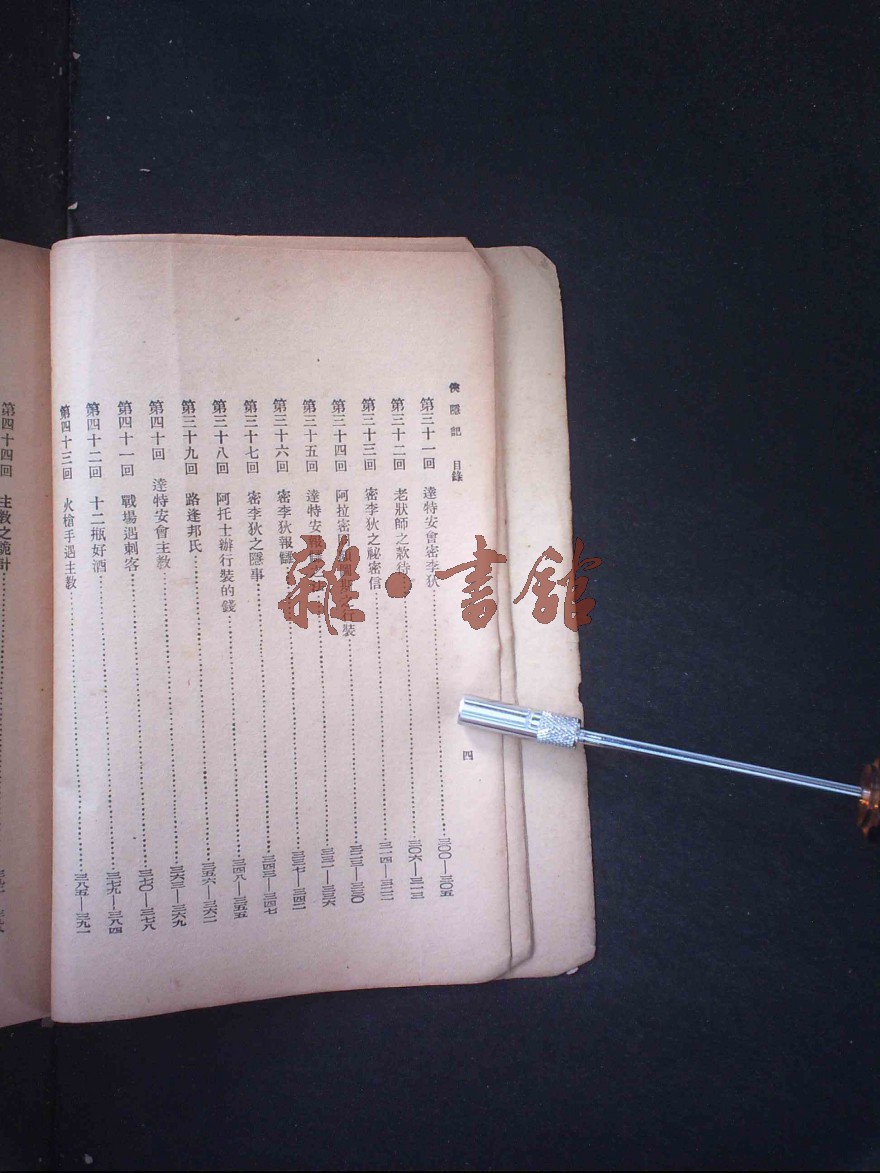 俠隱記 目錄
四
第三十一回 達特安會密李狄 三〇〇—三〇五
第三十二回 老狀師之款待 三〇六—三一三
第三十三回 密李狄之祕密信 三一四—三二二
第三十四回 阿拉密 裝 三二三—三三〇
第三十五回 達特安報 三三一—三三六
第三十六回 密李狄報讎 三三七—三四二
第三十七回 密李狄之隱事 三四三—三四七
第三十八回 阿托士辦行裝的錢 三四八—三五五
第三十九回 路逢邦氏 三五六—三六二
第四十回 達特安會主教 三六三—三六九
第四十一回 戰場遇刺客 三七〇—三七八
第四十二回 十二瓶好酒 三七九—三八四
第四十三回 火槍手遇主教 三八五—三九一
第四十四回 主教之詭計
雜·書館